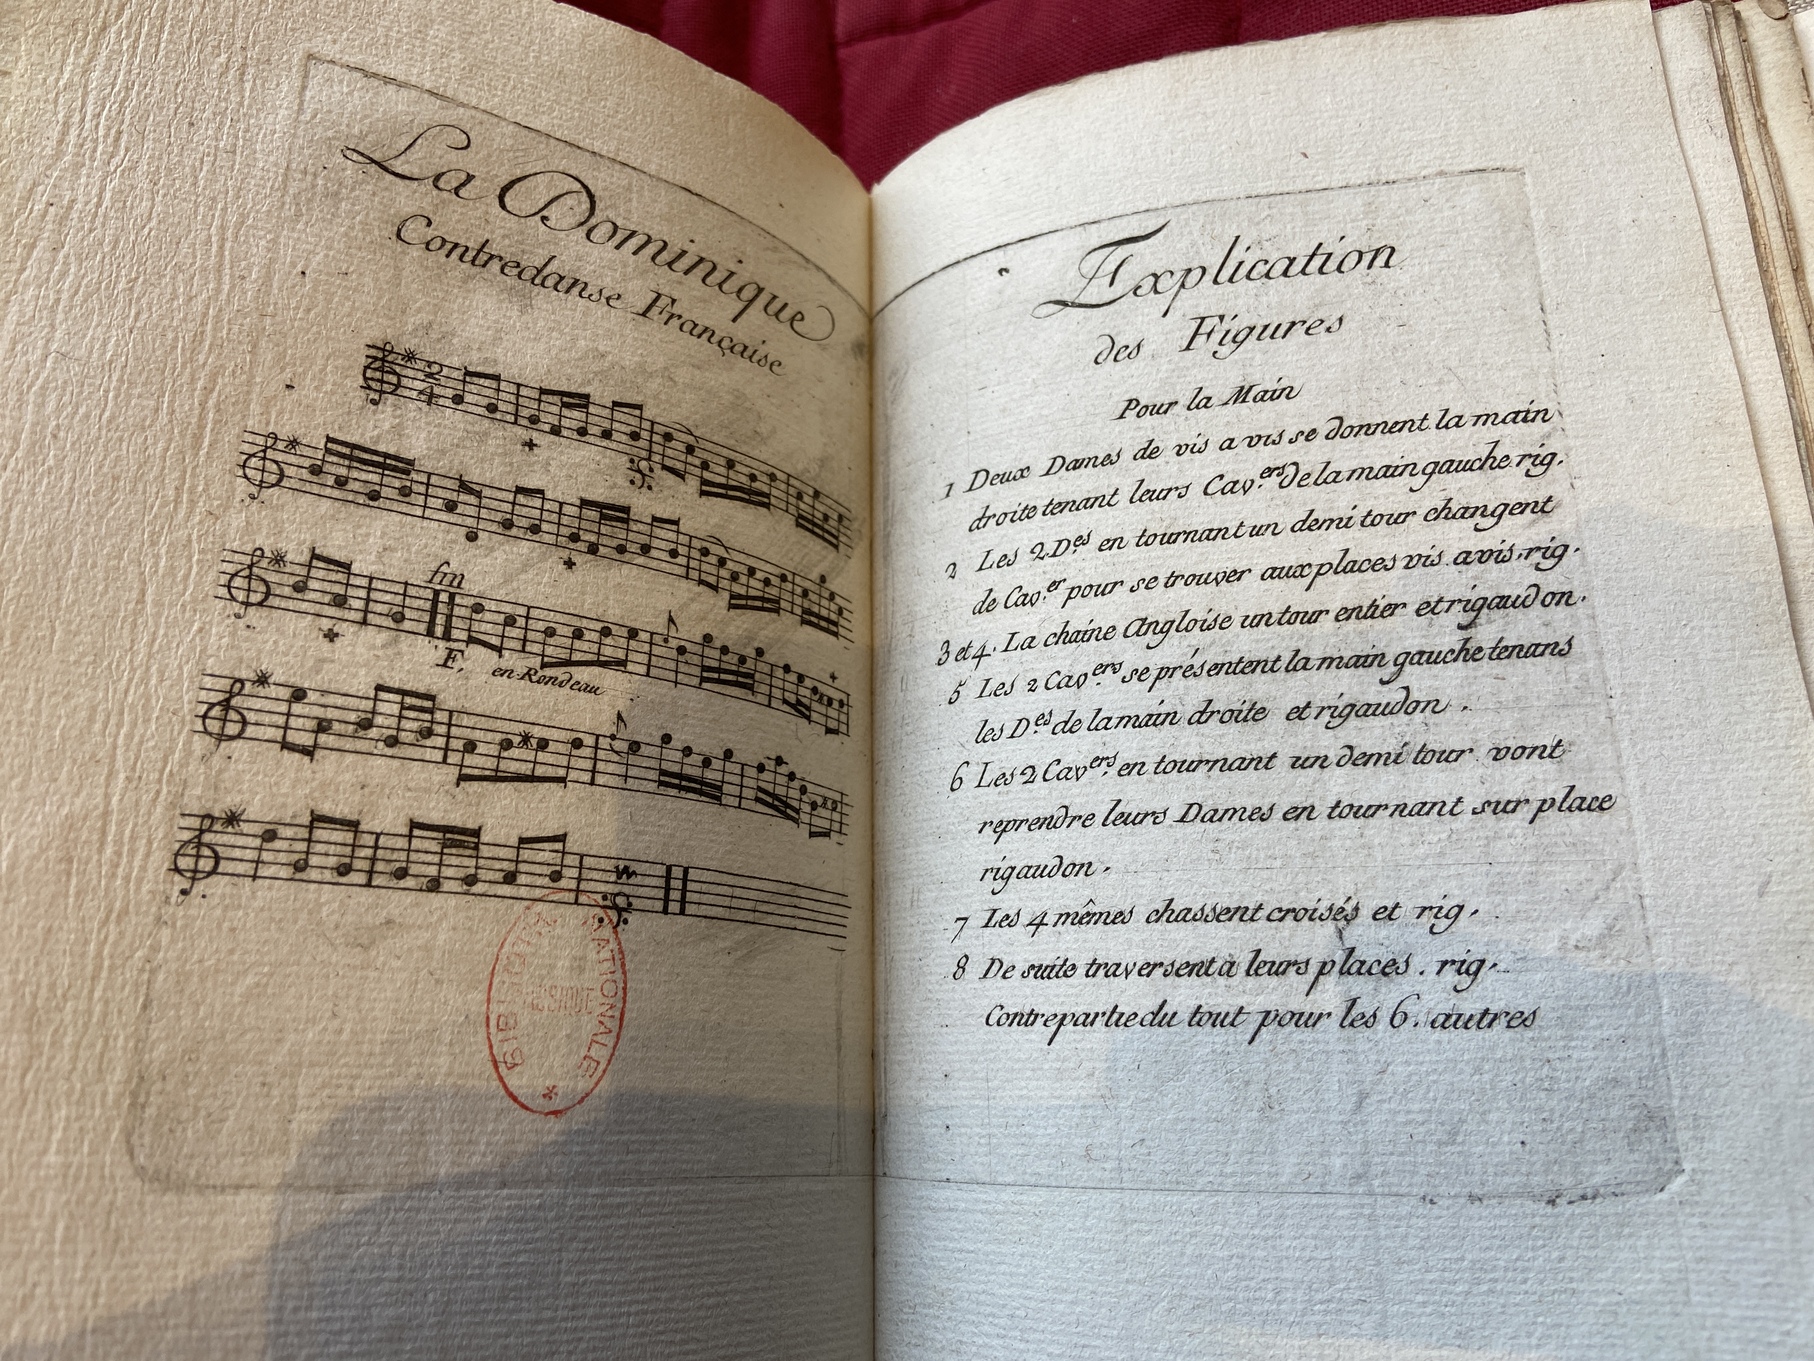 La Dominique
Contredanse Française
2
4
fin
F. en Rondeau
BIBLIOTHE NATIONALE
MUSIQUE
Explication
des Figures
Pour la Main
1 Deux Dames de vis a vis se donnent la main
droite tenant leurs Cav.ers de la main gauche. rig.
2 Les 2 D.es en tournant un demi tour changent
de Cav.er pour se trouver aux places vis avis, rig.
3 et 4. La chaine Angloise un tour entier et rigaudon.
5 Les 2 Cav.ers se présentent la main gauche tenans
les D.es de la main droite et rigaudon.
6 Les 2 Cav.ers en tournant un demi tour vont
reprendre leurs Dames en tournant sur place
rigaudon.
7 Les 4 mêmes chassent croisés et rig.
8 De suite traversent a leurs places. rig.
Contrepartie du tout pour les 6. autres